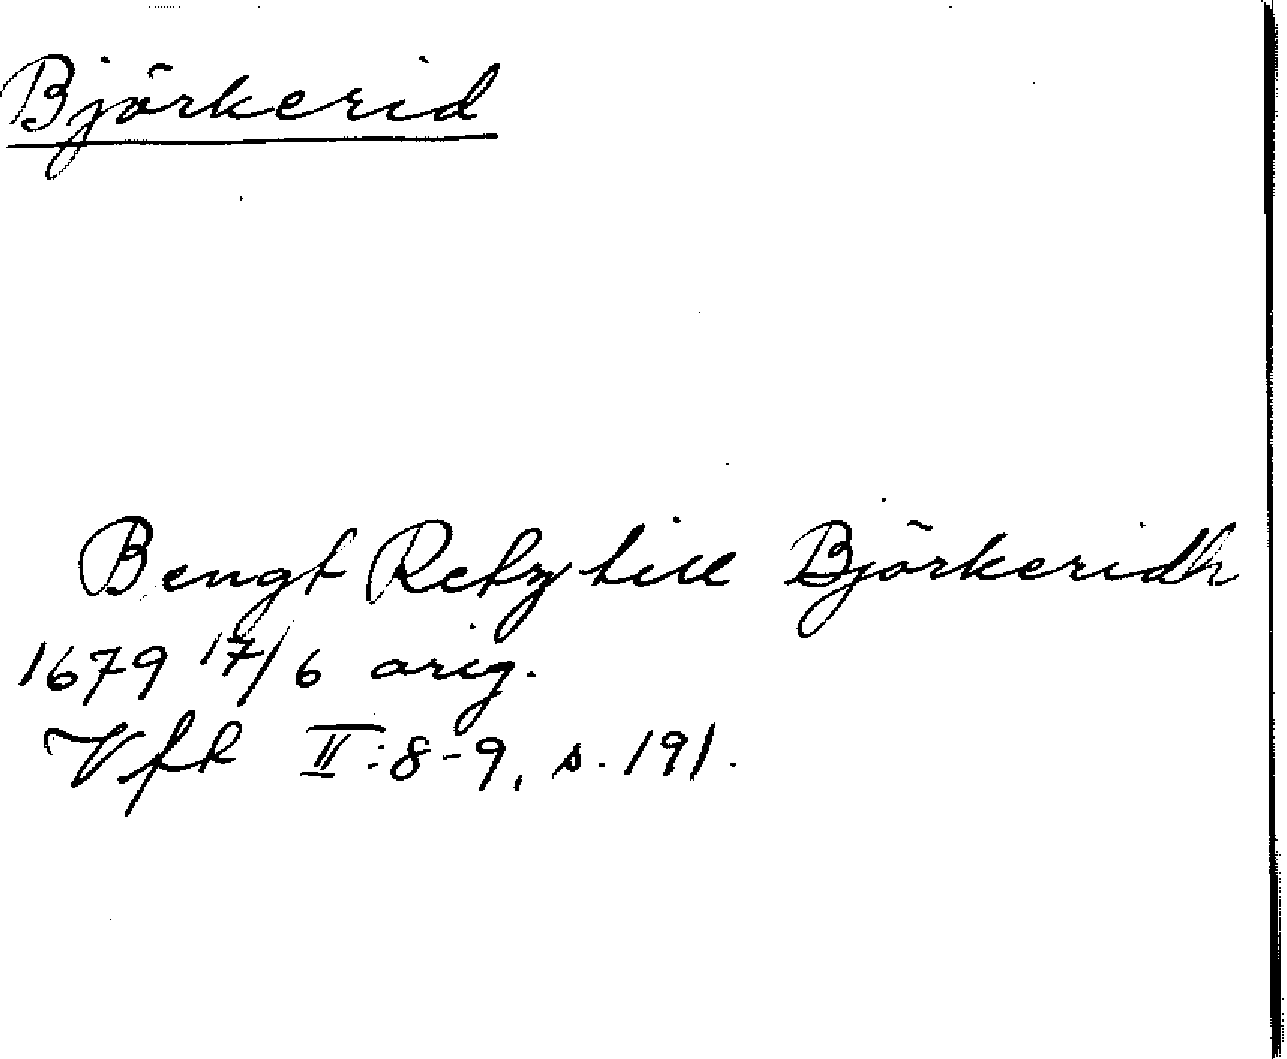 Björkerid
Bengt Retz till Björkeridh
1679 17/6 orig.
Vfk II:8-9, s. 191.